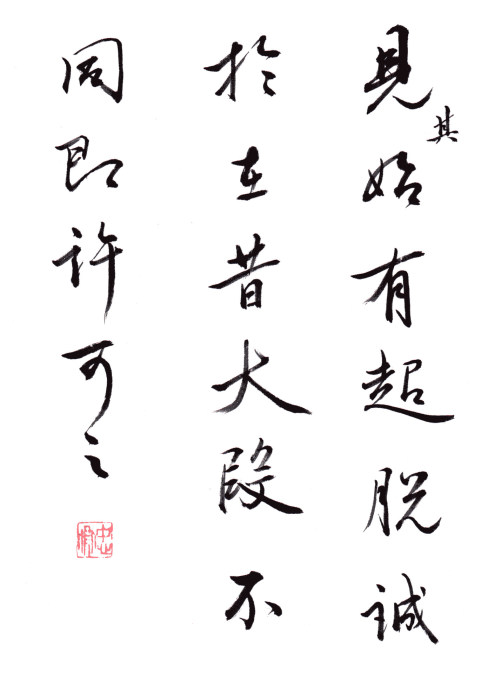 見其始有超脫誠
於在昔大段不
同即許可之